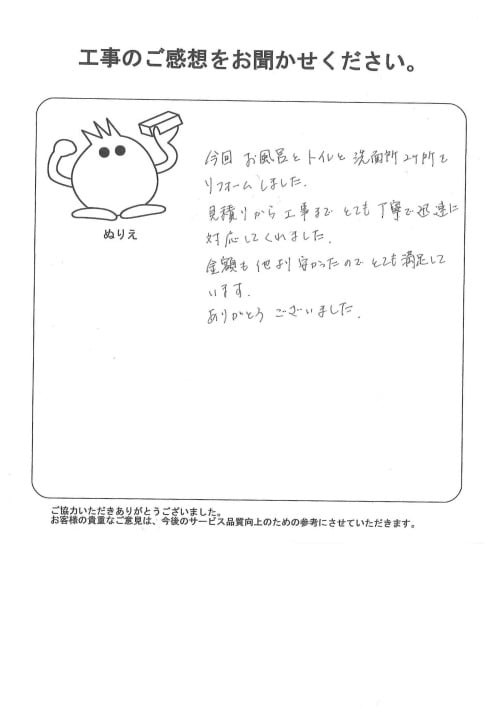 工事のご感想をお聞かせください。
ぬりえ
今回 お風呂とトイレと洗面所2ヶ所を
リフォームしました.
見積りから工事まで とても丁寧で迅速に
対応してくれました.
金額も他より安かったのでとても満足して
います.
ありがとう ございました.
ご協力いただきありがとうございました。
お客様の貴重なご意見は、今後のサービス品質向上のための参考にさせていただきます。